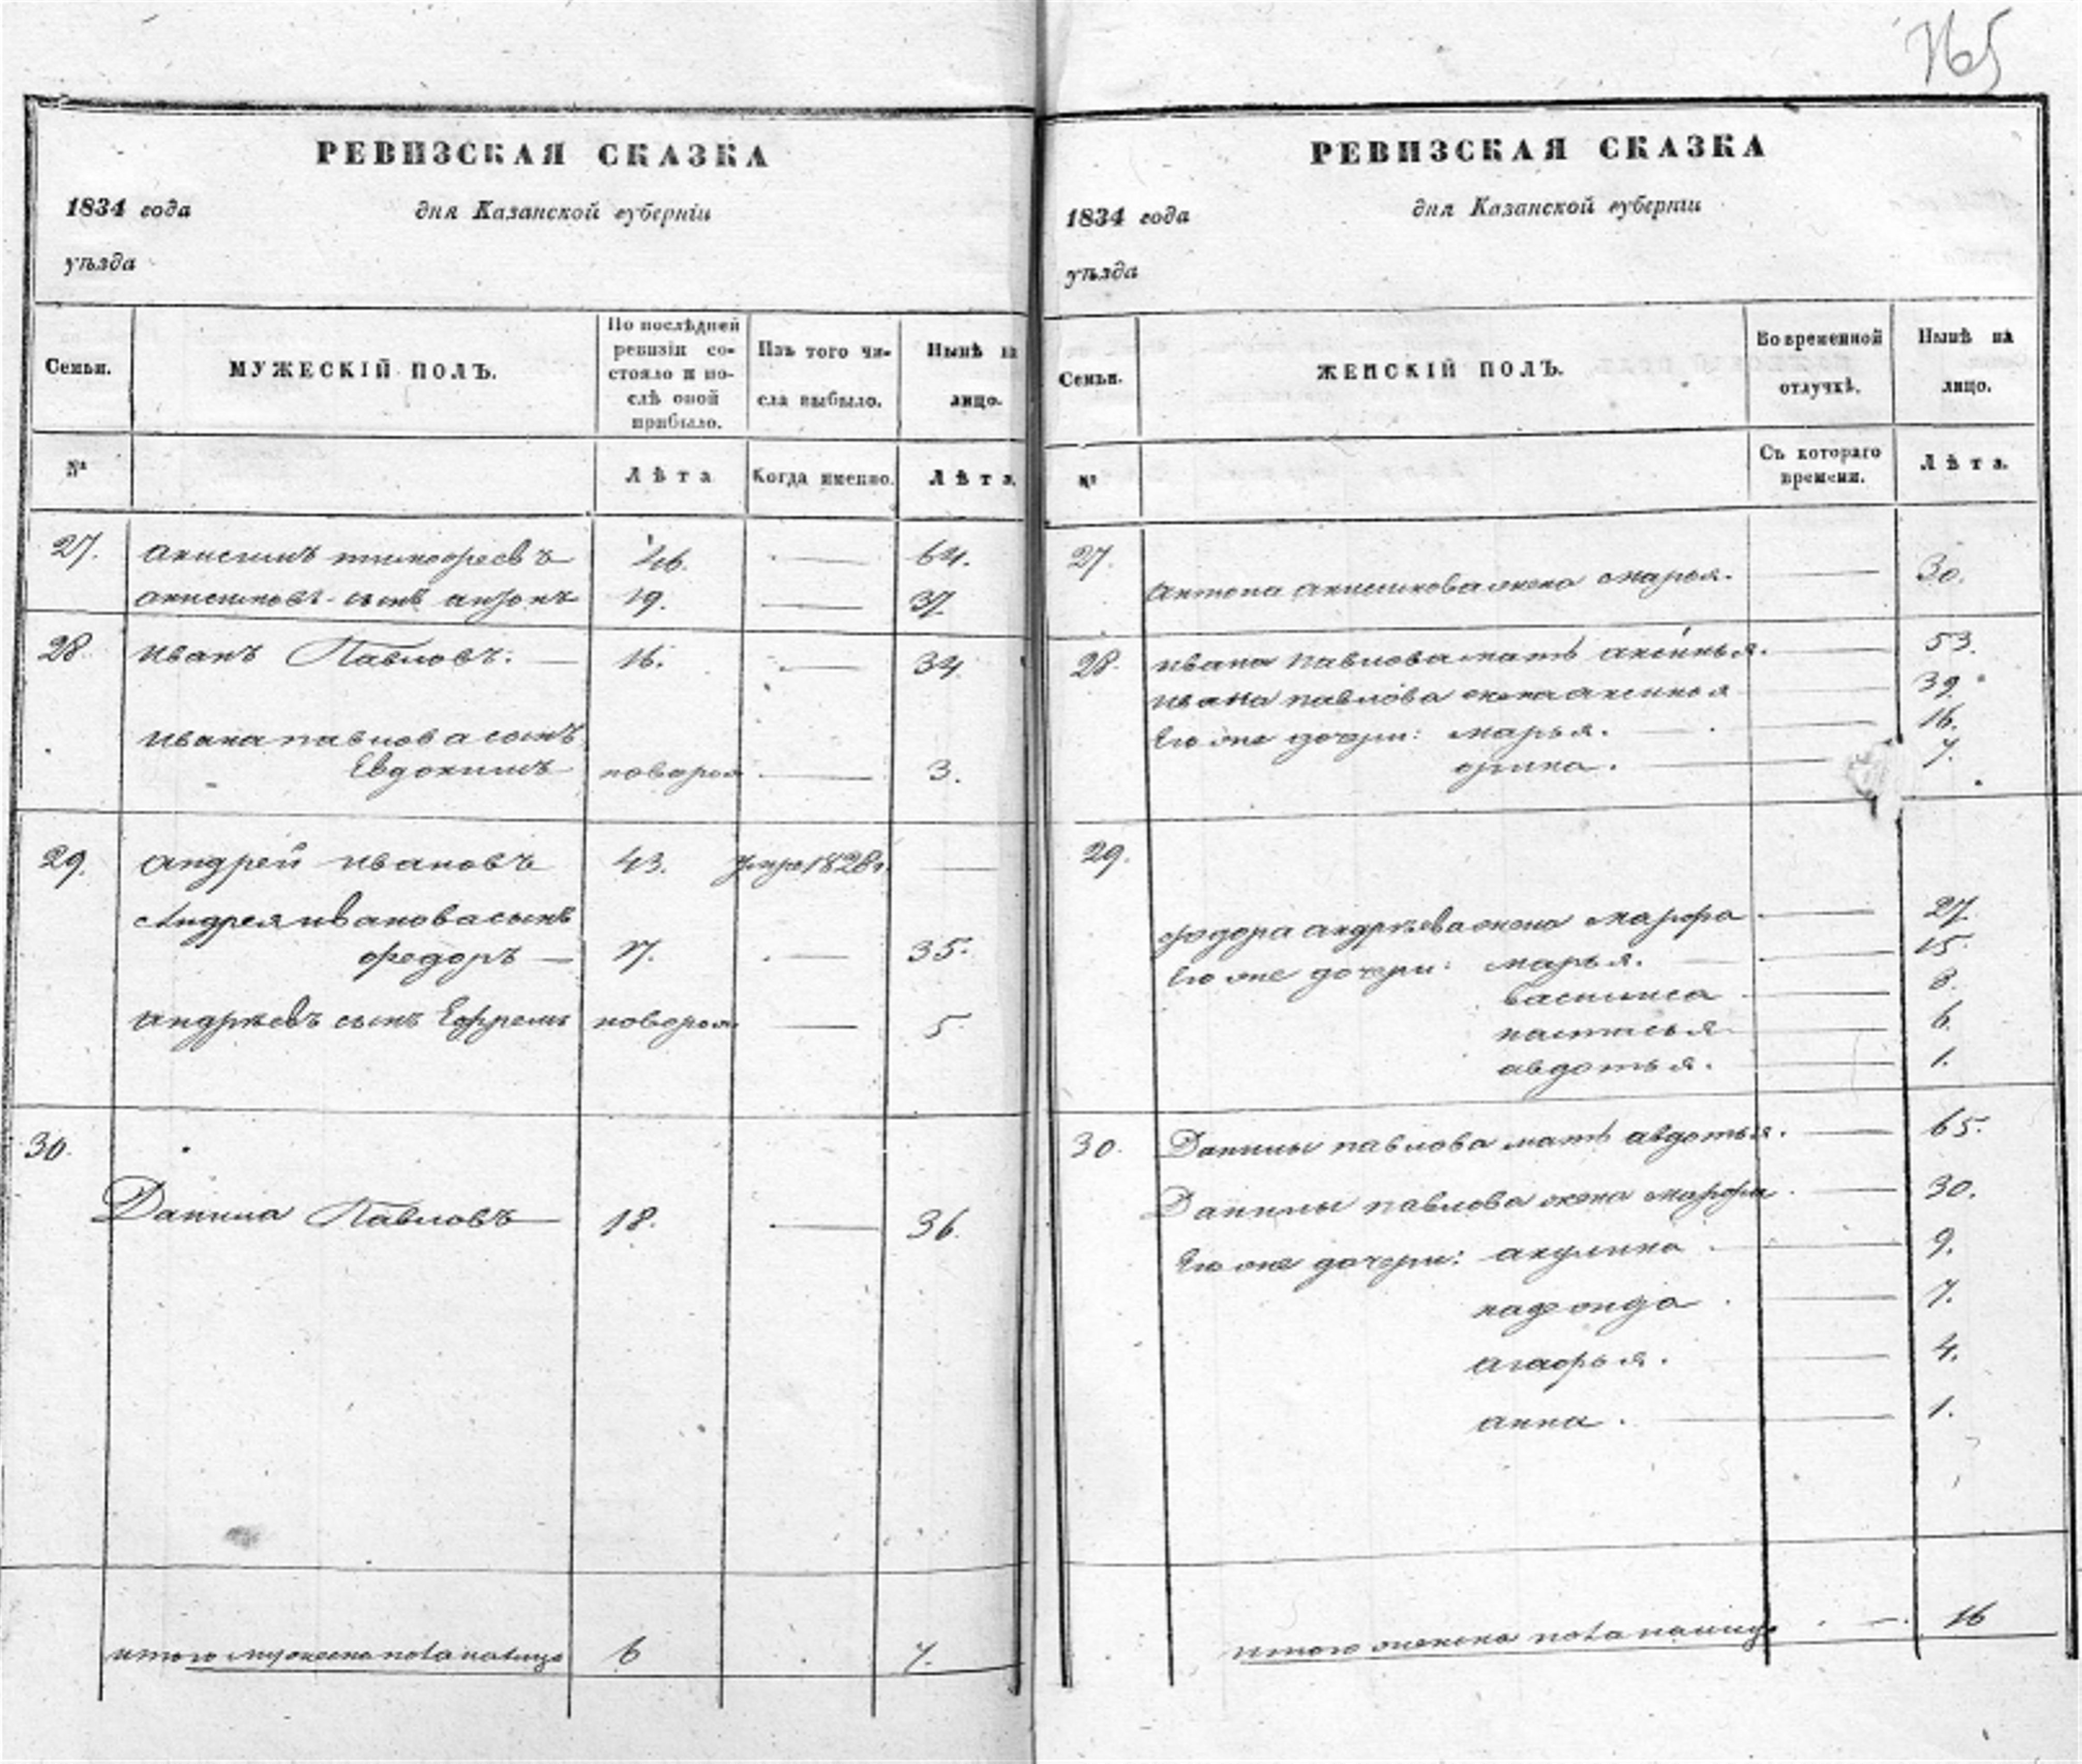 765
РЕВИЗСКАЯ СКАЗКА
1834 года дня Казанской губерніи
уѣзда
Семьи. МУЖЕСКІЙ ПОЛЪ. По послѣдней ревизіи состояло и послѣ оной прибыло. Изъ того числа выбыло. Нынѣ на лицо.
№ Лѣта Когда именно. Лѣта.
27. анисимъ тимофеевъ 46. — 64.
анисимовъ сынъ антонъ 19. — 37
28 иванъ Павловъ. — 16. — 34
ивана павлова сынъ
Евдокимъ новорож — 3.
29. андрей ивановъ 43. умре 1828 —
Андрея иванова сынъ
федоръ — 17. — 35.
андрѣевъ сынъ Ефремъ новорож — 5
30.
Данила Павловъ 18. — 36.
итого мужеска пола налицо 6 7.
РЕВИЗСКАЯ СКАЗКА
1834 года дня Казанской губерніи
уѣзда
Семьи. ЖЕНСКІЙ ПОЛЪ. Во временной отлучкѣ. Нынѣ на лицо.
№ Съ котораго времени. Лѣта.
27. антона анисимова жена марья. — 30.
28. ивана павлова мать аксинья. — 53.
ивана павлова жена аксинья — 39.
Его же дочери: марья. — 16.
орина. — 7.
29.
федора андрѣева жена марфа — 27
Его же дочери: марья. — 15.
василиса — 8.
настасья — 6.
авдотья. — 1.
30. Данилы павлова мать авдотья. — 65.
Данилы павлова жена марфа — 30.
Его же дочери: акулина — 9.
7.
4.
анна. — 1.
итого женска пола налицо — 16